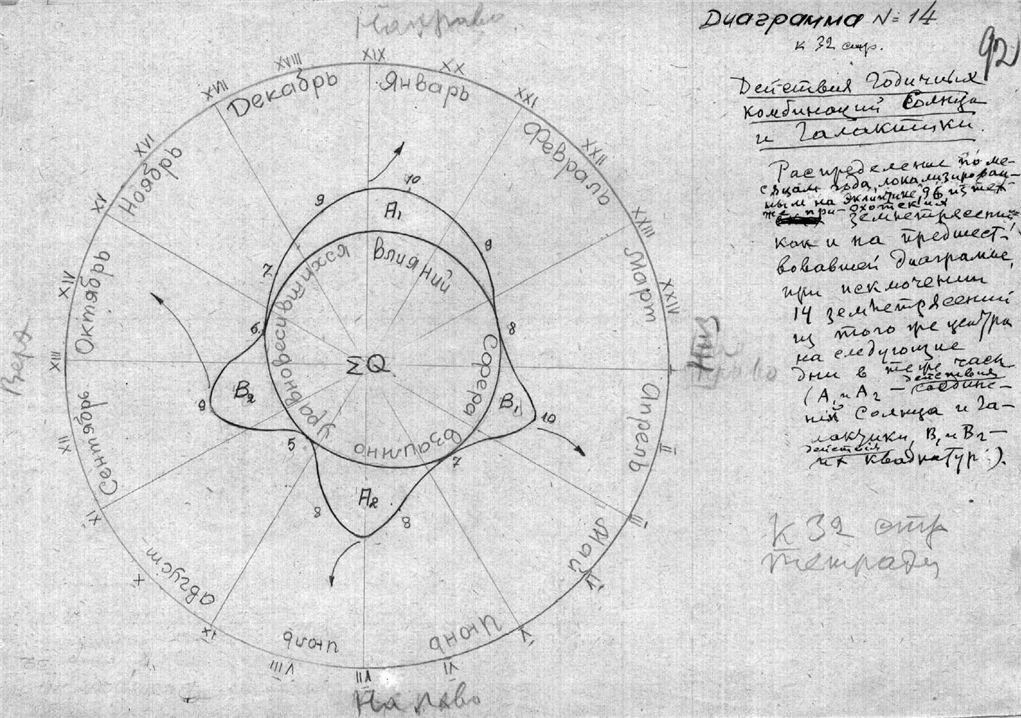 Направо
Диаграмма № 14
к 32 стр.
92
Действия Годичных
комбинаций Солнца
и Галактики.
Распределение по ме-
сяцам года, локализирован-
ным на эклиптике, 96 из тех
же при-охотских
землетрясений
как и на предшест-
вовавшей диаграмме,
при исключении
14 землетрясений
из того же центра
на следующие
дни в те же часы
(A₁ и A₂ — действия соедине-
ний Солнца и Га-
лактики, B₁ и B₂ —
действия их квадратур.).
К 32 стр
тетради
XIX
XX
XXI
XXII
XXIII
XXIV
I
II
III
IV
V
VI
VII
VIII
IX
X
XI
XII
XIII
XIV
XV
XVI
XVII
XVIII
Январь
Февраль
Март
Апрель
Май
Июнь
июль
август
Сентябрь
Октябрь
Ноябрь
Декабрь
9
10
9
8
10
7
8
8
5
9
6
7
A₁
B₁
A₂
B₂
Сфера взаимно уравновесившихся влияний
ΣQ
Верх
Низ
Налево